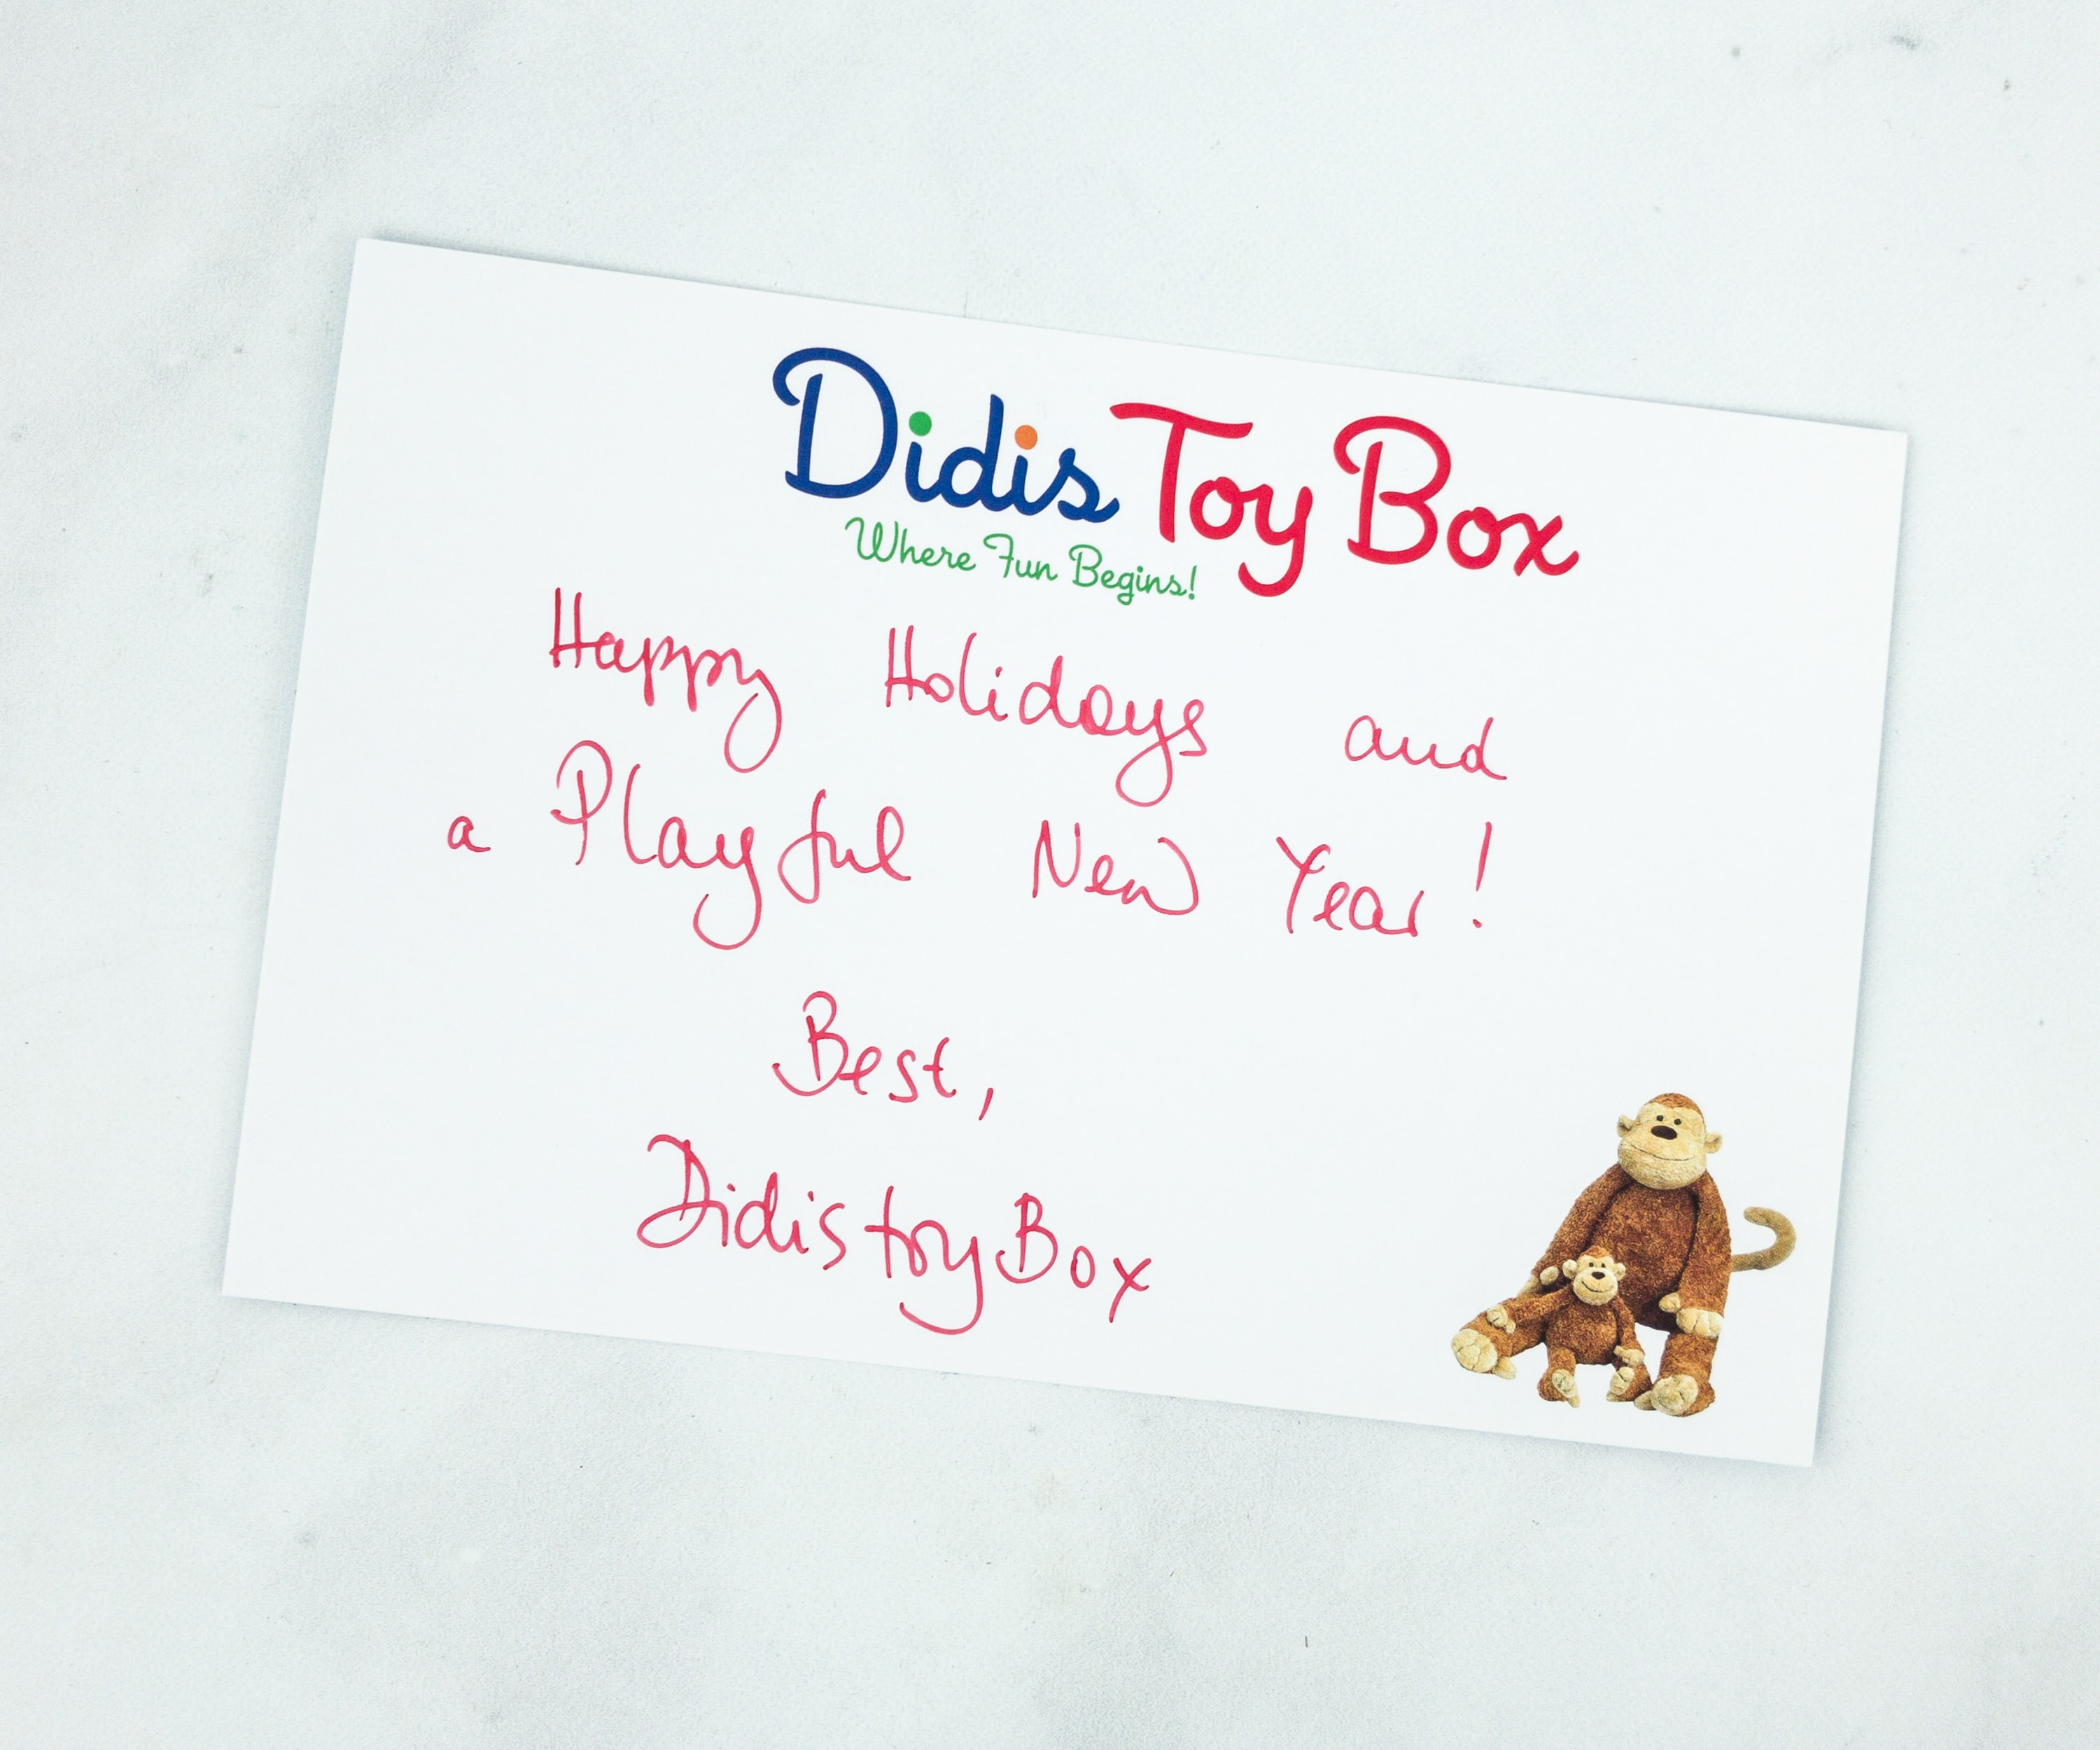 Didis Toy Box
Where Fun Begins!
Happy Holidays and
a Playful New Year!
Best,
DidistoyBox